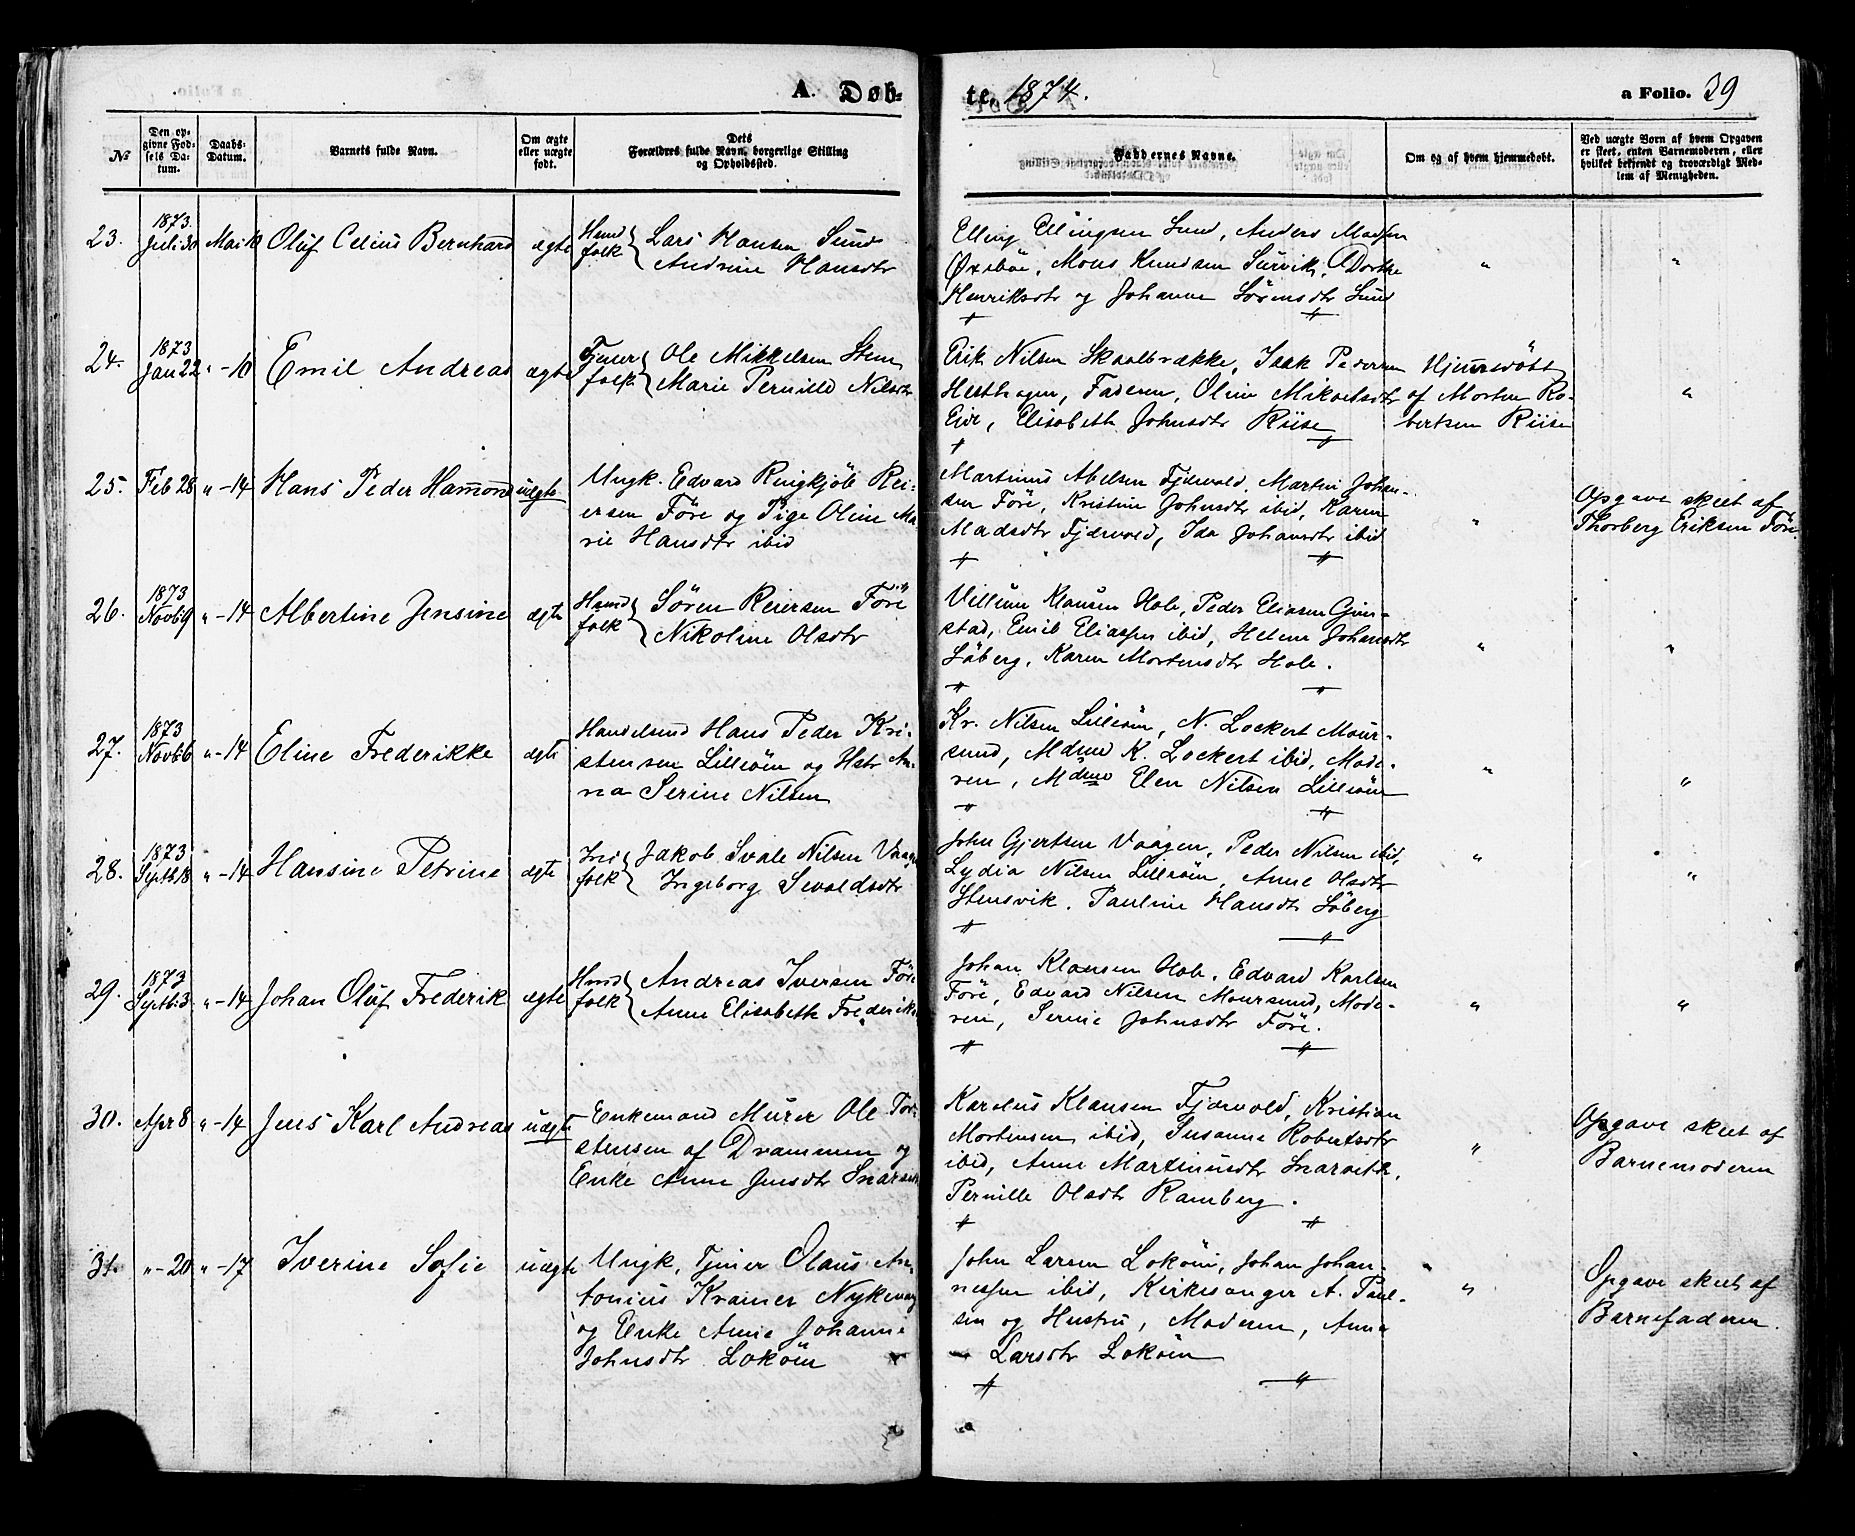 A. Døb-
te, 1874.
a Folio. 39
№
Den op-
givne Fød-
sels Da-
tum.
Daabs-
Datum.
Barnets fulde Navn.
Om ægte
eller uægte
født.
Dets
Forældres fulde Navn, borgerlige Stilling
og Opholdssted.
Faddernes Navne.
Om og af hvem hjemmedøbt.
Ved uægte Børn af hvem Opgaven
er skeet, enten Barnemoderen, eller
hvilket bekjendt og troværdigt Med-
lem af Menigheden.
23.
1873.
Juli 30
Mai 10
Oluf Celius Bernhard
ægte
Husmd
folk
Lars Hansen Sund
Andrine Hansdtr
Elling Ellingsen Sund, Anders Madsen
Øxsbøe, Mons Knudsen Survik, Dorthe
Henriksdtr og Johanne Sörensdtr Sund
"
"
24.
1873
Jan 22
" - 10
Emil Andreas
ægte
Tjener
folk
Ole Mikkelsen Sten
Marie Pernille Nilsdtr
Erik Nilsen Skaalbrække, Isak Pedersen
Hesthagen, Faderen, Oline Mikaelsdtr
Eide, Elisabeth Johnsdtr Riise
Hjemmedöbt
af Morten Ro-
bertsen Riise
"
25.
Feb 28
" - 14
Hans Peder Hamond
uægte
Ungk. Edvard Ringkjöb Rei-
ersen Före og Pige Oline Ma-
rie Hansdtr ibid
Martinus Abelsen Fjærvold, Martin Johan-
sen Före, Kristine Johnsdtr ibid, Karen
Madsdtr Fjærvold, Ida Johansdtr ibid
"
Opgave skeet af
Thorberg Eriksen Före.
26.
1873
Novb 9
" - 14
Albertine Jensine
ægte
Husmd
folk
Sören Reiersen Före
Nikoline Olsdtr
Villum Klausen Hole, Peder Eliasen Grim-
stad, Emil Eliassen ibid, Helene Johansdtr
Söberg, Karen Mortensdtr Hole.
"
"
27.
1873
Novb 6
" - 14
Eline Frederikke
ægte
Handelsmd Hans Peder Kri-
stensen Lilleöen og Hstr An-
na Serine Nilsen
Kr. Nilsen Lilleöen, N. Lockert Mour-
sund, Mdme K. Lockert ibid, Mode-
ren, Mdme Elen Nilsen Lilleöen
"
"
28.
1873
Septb 18
" - 14
Hansine Petrine
ægte
Ind
folk
Jakob Svale Nilsen Vaage
Ingeborg Sevaldsdtr
John Gjertsen Vaagen, Peder Nilsen ibid,
Lydia Nilsen Lilleöen, Anne Olsdtr
Stensvik, Pauline Hansdtr Söberg
"
"
29.
1873
Septb 3
" - 14
Johan Oluf Frederik
ægte
Husmd
folk
Andreas Iversen Före
Anne Elisabeth Frederiks
Johan Klausen Hole, Edvard Karlsen
Före, Edvard Nilsen Moursund, Mode-
ren, Serine Johnsdtr Före.
"
"
30.
Apr 8
" - 14
Jens Karl Andreas
uægte
Enkemand Murer Ole Tor-
stensen af Drammen og
Enke Anne Jensdtr Snarset
Karelius Klausen Fjærvold, Kristian
Mortensen ibid, Susanne Robertsdtr
ibid, Anne Martinusdtr Snarsetb,
Pernille Olsdtr Ramberg.
"
Opgave skeet af
Barnemoderen
31.
" - 20
" - 17
Iverine Sofie
uægte
Ungk, Tjener Olaus An-
tonius Kramer Nykvaag
og Enke Anne Johanne
Johnsdtr Loköen
John Larsen Loköen, Johan Johan-
nesen ibid, Kirkesanger A. Paul-
sen og Hustru, Moderen, Anne
Larsdtr Loköen
"
Opgave skeet af
Barnefaderen.